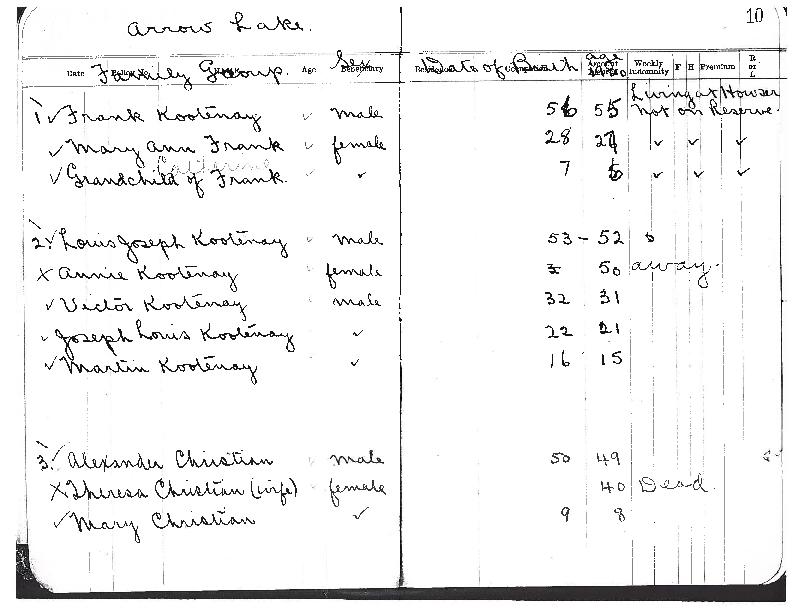 10
Arrow Lake.
Date Family Group. Age Sex Beneficiary Date of Birth age Weekly Indemnity F H Premium R or L
1 ✓ Frank Kootenay ✓ male 56 55 Living at Howser not on Reserve.
✓ Mary Ann Frank ✓ female 28 27 ✓ ✓ ✓
Catherine
✓ Grandchild of Frank. ✓ ✓ 7 6 ✓ ✓ ✓
2. ✓ Louis Joseph Kootenay ✓ male 53 - 52
X Annie Kootenay ✓ female 50 away.
✓ Victor Kootenay ✓ male 32 31
✓ Joseph Louis Kootenay ✓ 22 21
✓ Martin Kootenay ✓ 16 15
3. ✓ Alexander Christian ✓ male 50 49
X Theresa Christian (wife) ✓ female 40 Dead.
✓ Mary Christian ✓ 9 8